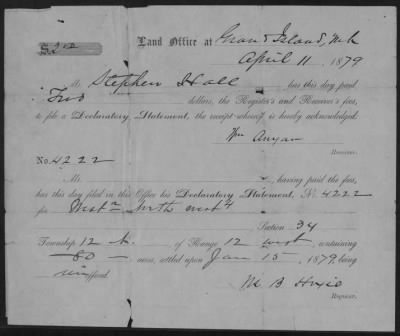 Land Office at Grand Island, Neb
April 11, 1879
Mr. Stephen Hall has this day paid
Two dollars, the Register's and Receiver's fees,
to file a Declaratory Statement, the receipt whereof is hereby acknowledged.
Wm Anyan
Receiver.
No. 4222
Mr. , having paid the fees,
has this day filed in this Office his Declaratory Statement, No. 4222
for West ½ North west 4
Section 34
Township 12 N. , of Range 12 west, containing
80 acres, settled upon Jan 15 1879, being
offered.
M B Hoxie
Register.